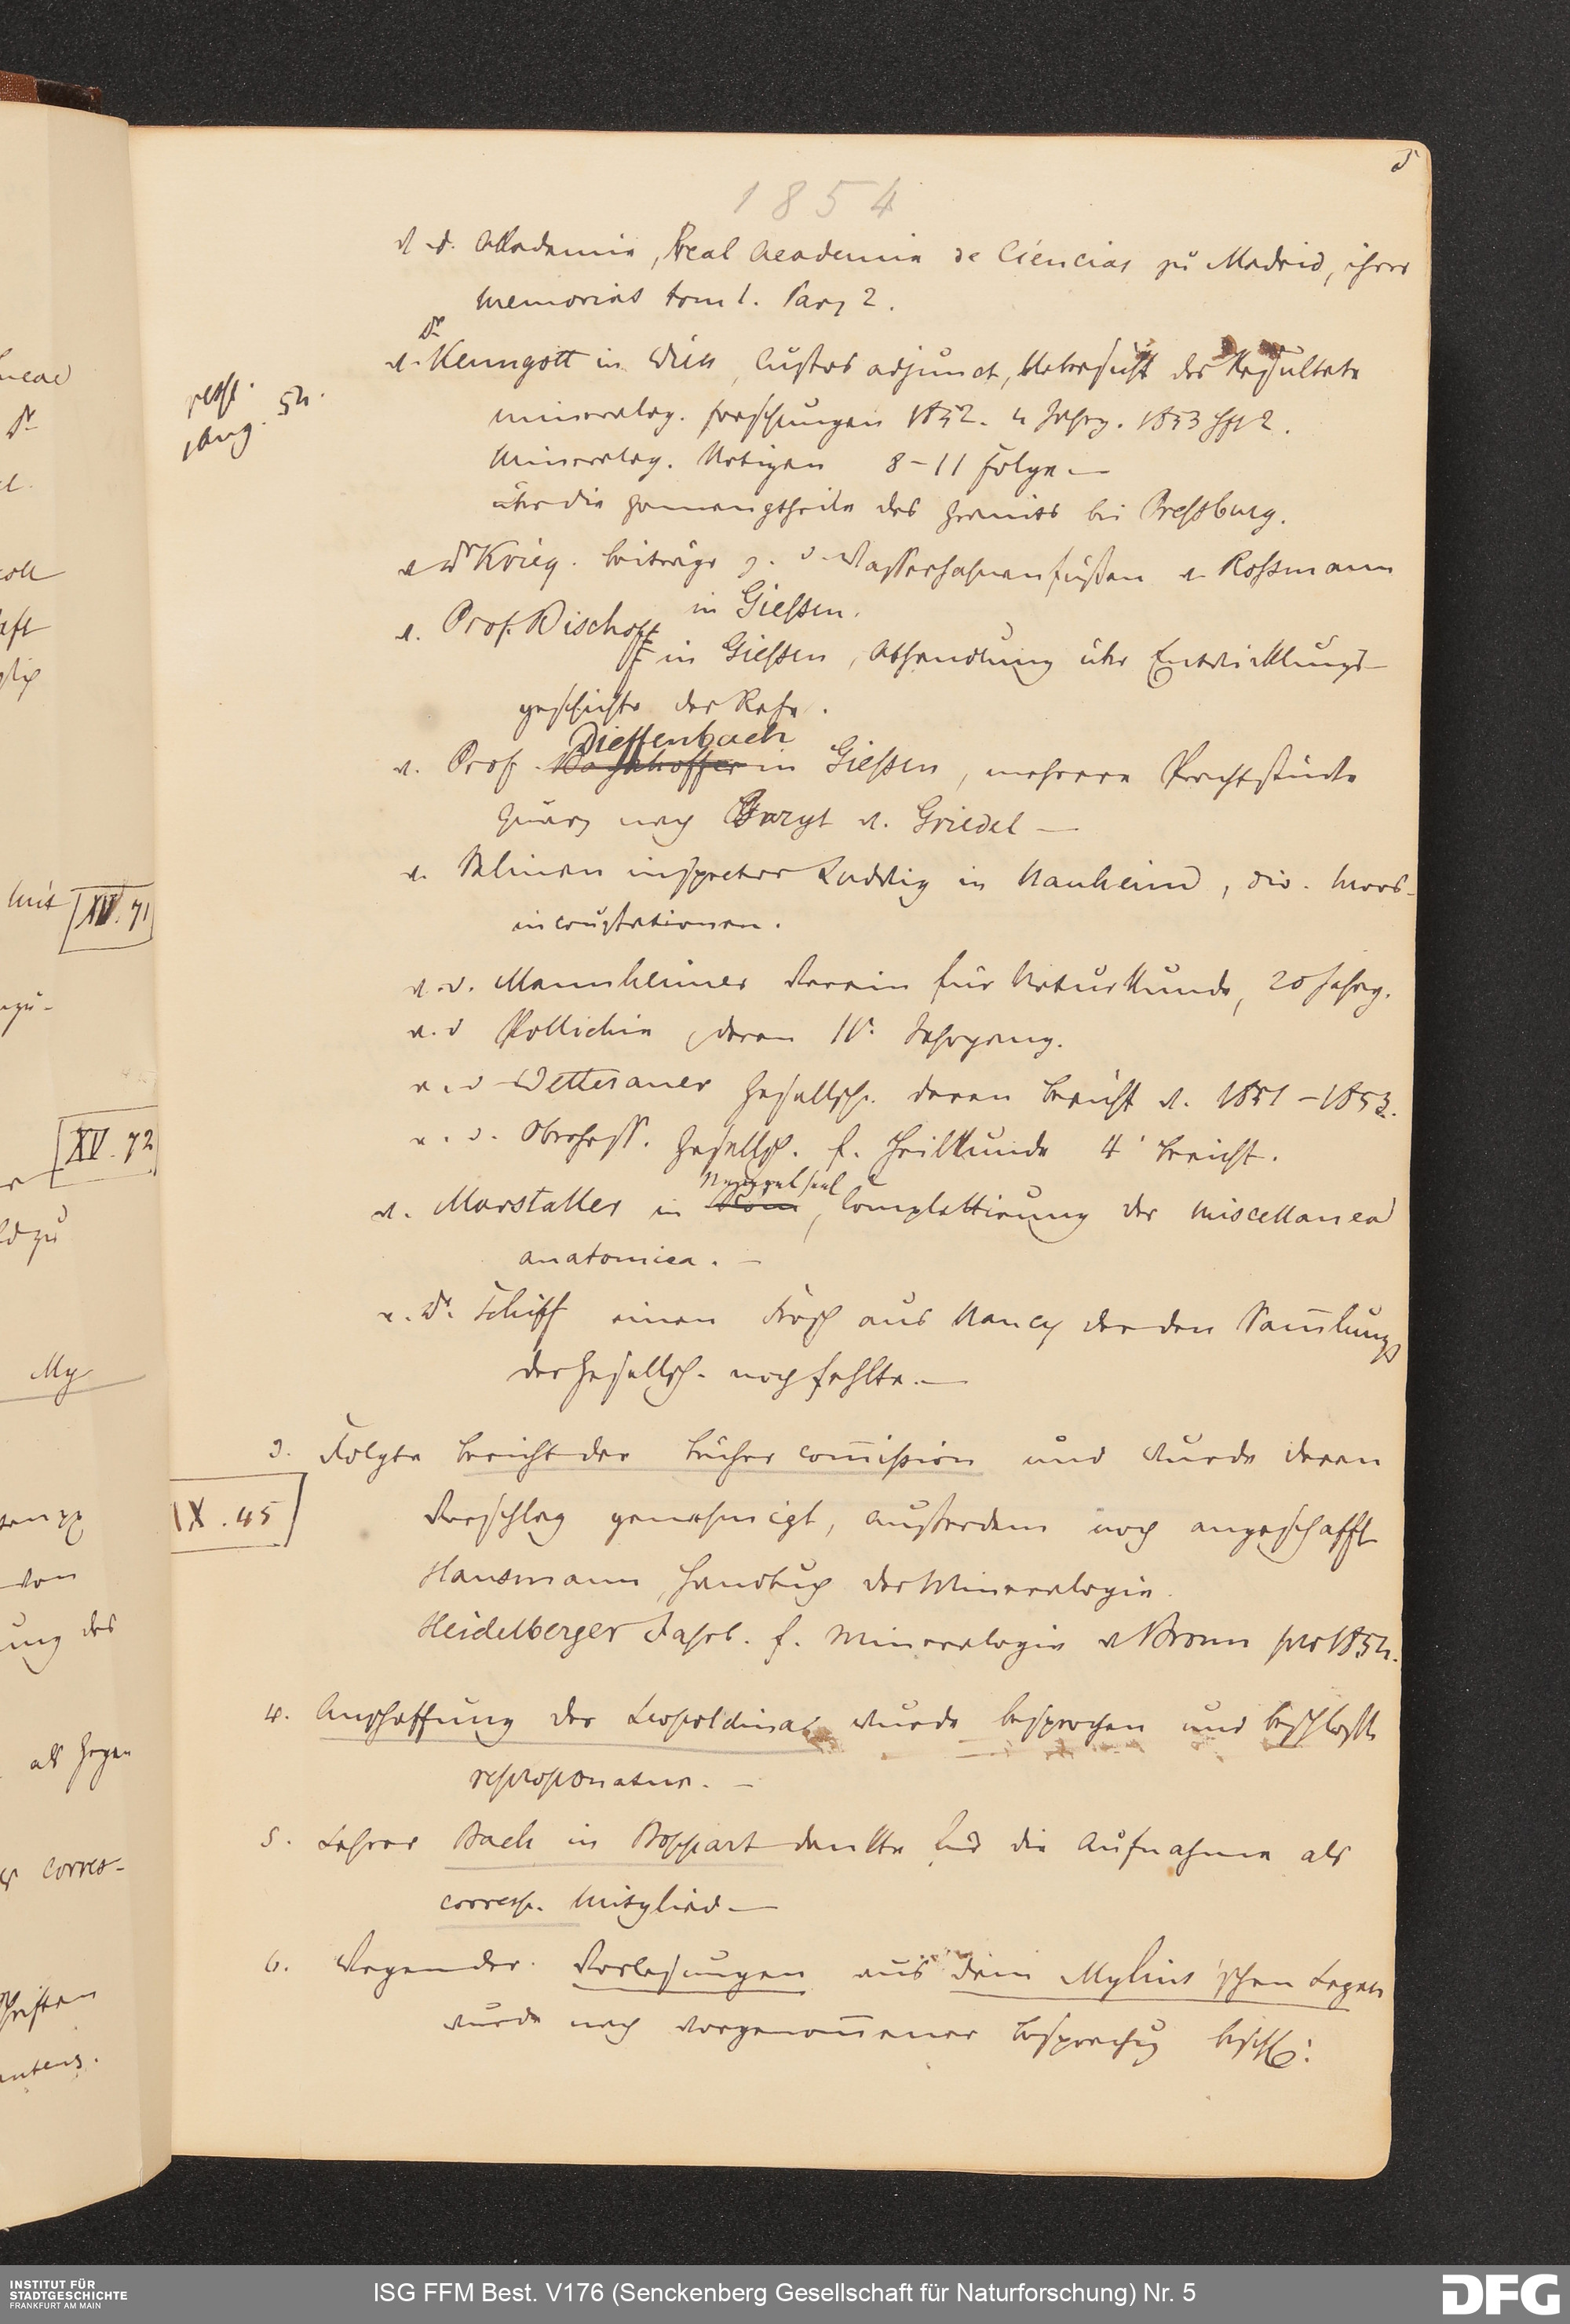 5
1854
v. d. Akademie, Real Academia de Ciencias zu Madrid, ihrer
memorias tom 1. Parz 2.
Dr
v. Kenngott in Wien, Custos adjunct, Uebersicht der Resultate
mineralog. Forschungen 1852. u Jahrg. 1853 Hft 2.
Mineralog. Notizen 8-11 Folge —
über die Gemengtheile des Granits bei Pressburg.
54.
v Dr Krieg. Beiträge z. d. Wasserhahnenfüßen v. Roßmann
in Gießen.
v. Prof. Bischoff in Gießen, Abhandlung über Entwicklungs-
geschichte des Rehs.
Dieffenbach
v. Prof. in Gießen, mehrere Prachtstücke
Quarz nach Baryt v. Griedel —
v. Salinen inspector Ludwig in Nauheim, div. Moos-
incrustationen.
v. d. Mannheimer Verein für Naturkunde, 20 Jahrg.
v. d Pollichia, deren 11r Jahrgang.
v. d Wetterauer Gesellsch. deren Bericht v. 1851-1853.
v. d. Oberhess. Gesellsch. f. Heilkunde 4r Bericht.
v. Marstaller in , Complettirung der miscellanea
anatomica. —
v. Dr. Schiff einen Frosch aus Nancy der den Sam̄lungs
der Gesellsch. noch fehlte. —
3. Folgte Bericht der Bücher com̄ission und wurde deren
IX. 45
Vorschlag genehmigt, außerdem noch angeschafft
Hausmann, Handbuch der Mineralogie.
Heidelberger Jahrb. f. Mineralogie v Bronn pro 1854.
4. Anschaffung der Leopoldina wurde besprochen und
reproponatur. —
5. Lehrer Bach in Boppart dankte für die Aufnahme als
corresp. Mitglied —
6. Wegen der Vorlesungen aus dem Mylius'schen Legat
wurde nach vorgenom̄ener Besprechg beschl:
XV. 71
XV. 72
My
von
corres-
INSTITUT FÜR
STADTGESCHICHTE
FRANKFURT AM MAIN
ISG FFM Best. V176 (Senckenberg Gesellschaft für Naturforschung) Nr. 5
DFG